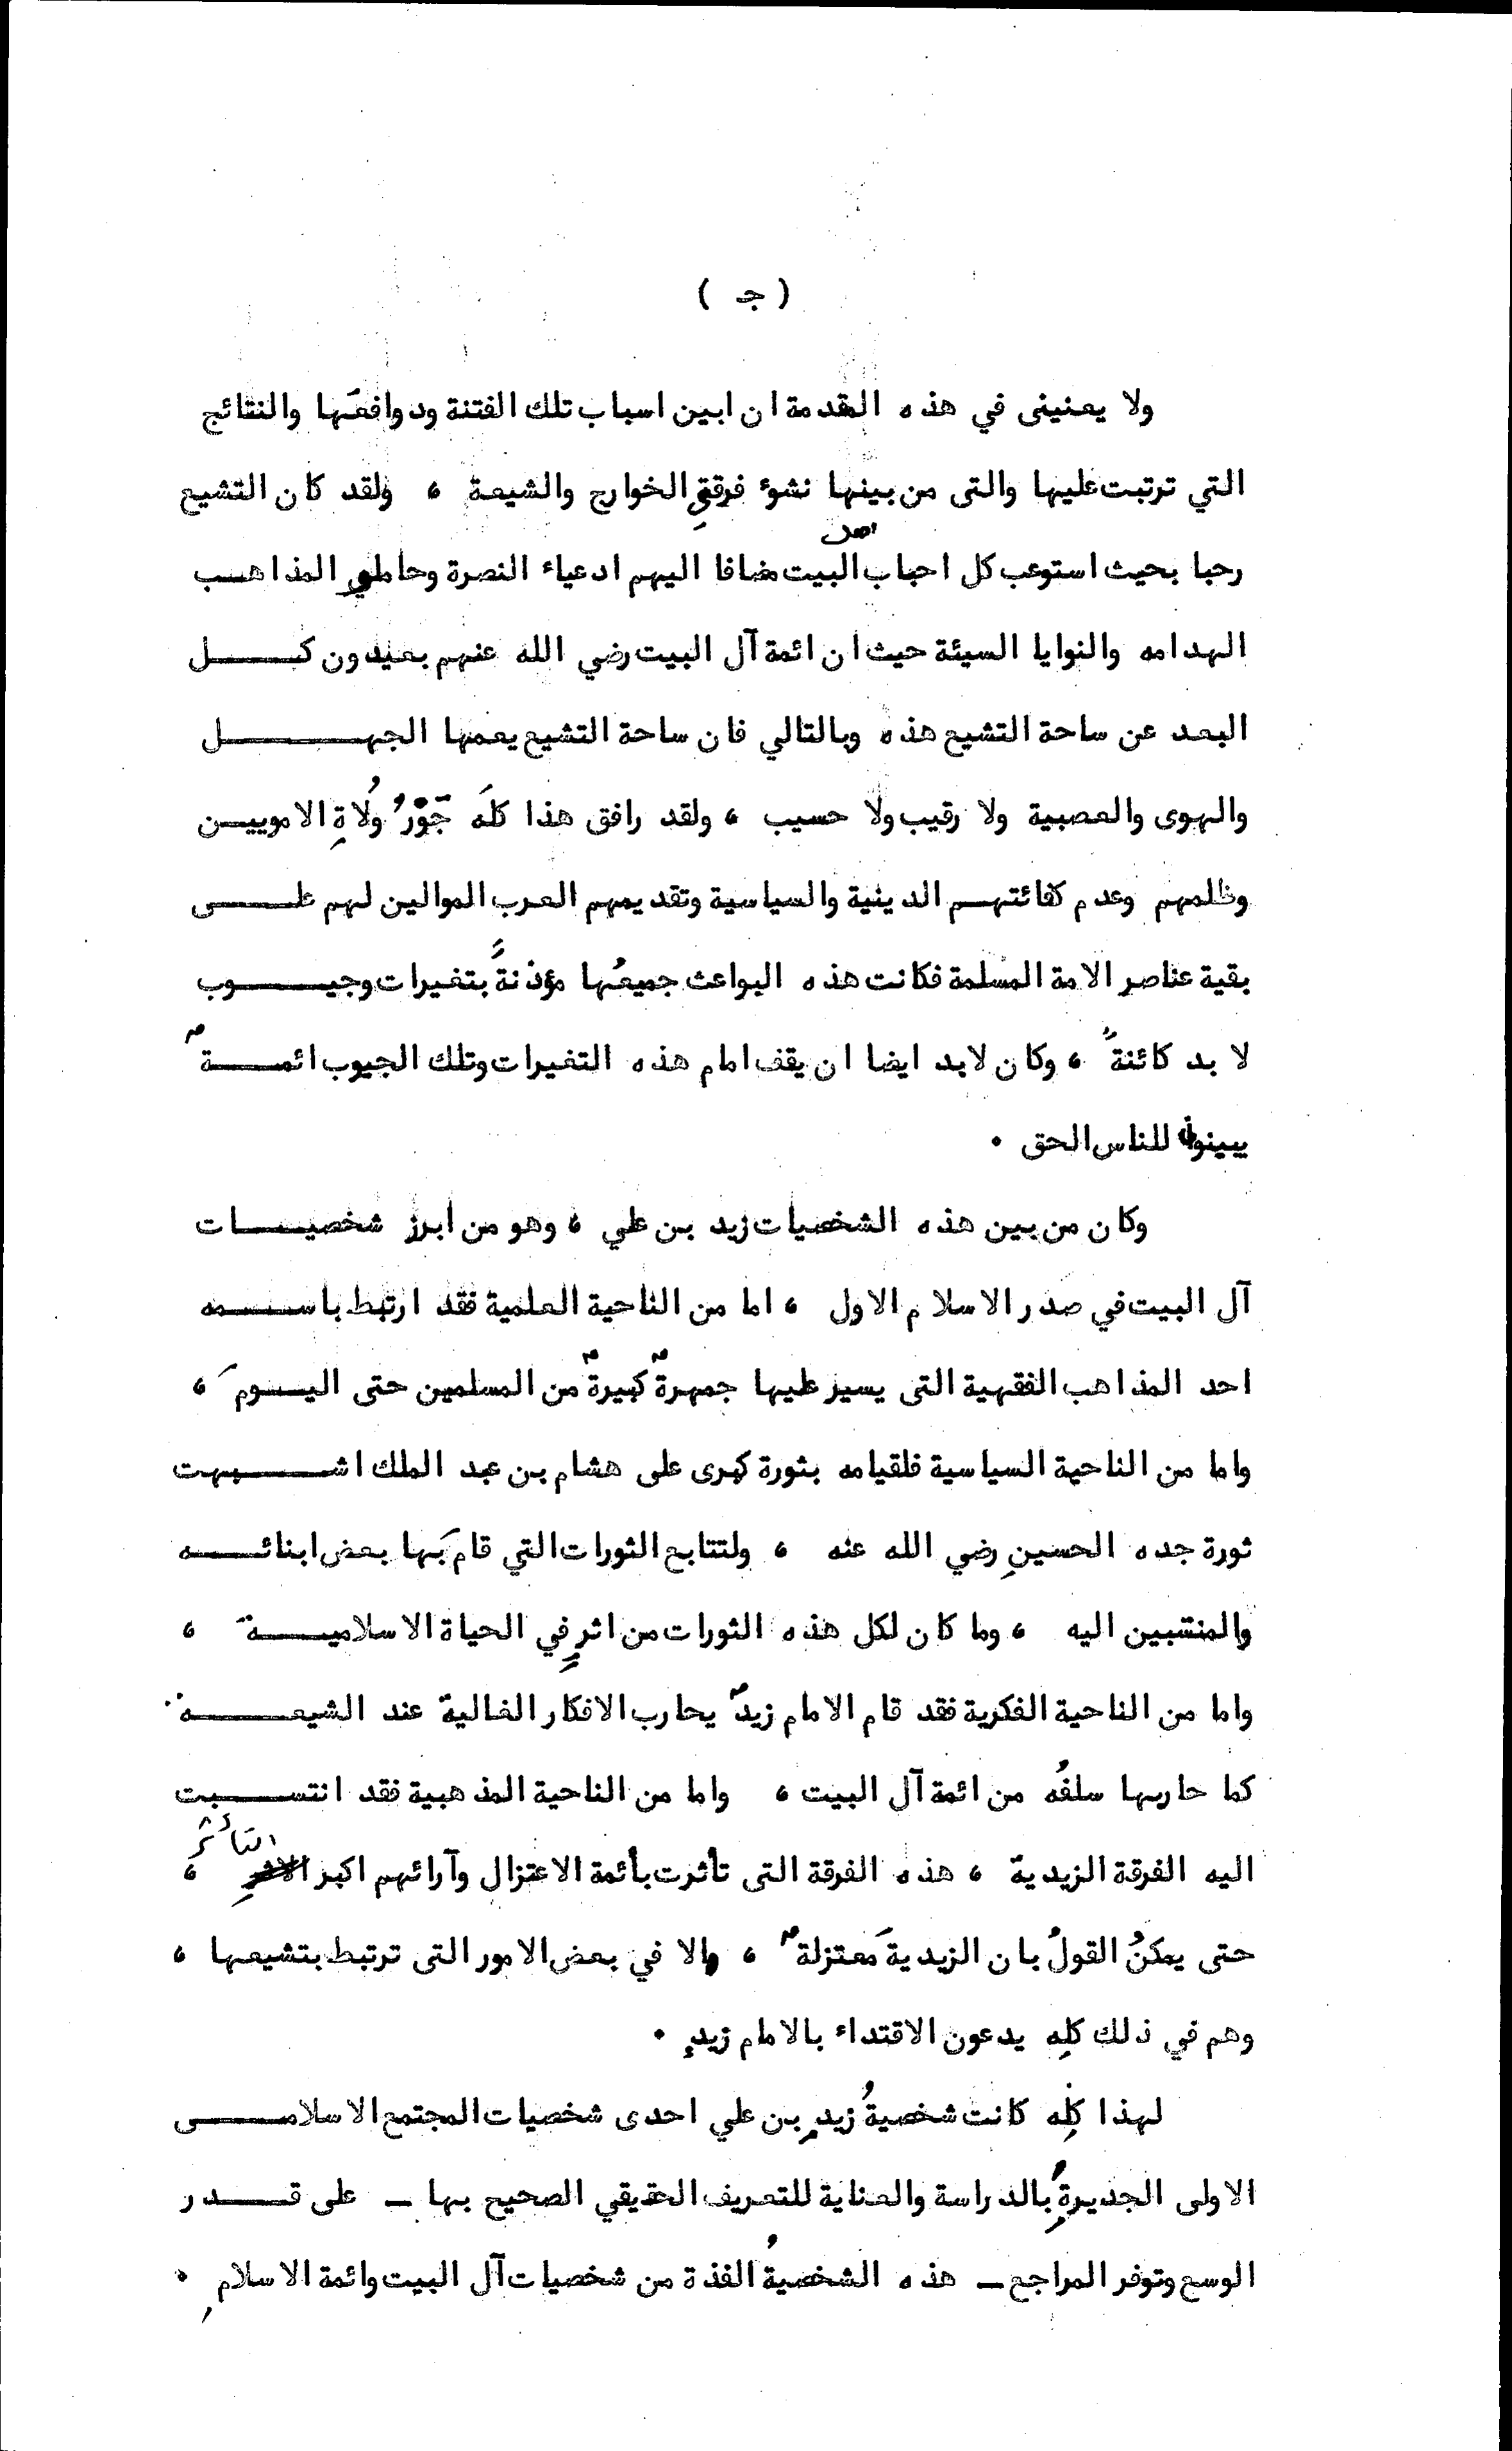 ( جـ )
ولا يعنينى في هذه المقدمة ان ابين اسباب تلك الفتنة ودوافعَها والنتائج
التي ترتبت عليها والتى من بينها نشوء فرقتيِ الخوارج والشيعة ، ولقد كان التشيع
رحبا بحيث استوعب كل احباب اهل البيت مضافا اليهم ادعياء النصرة وحاملي المذاهب
الهدامه والنوايا السيئة حيث ان ائمة آل البيت رضي الله عنهم بعيدون كل
البعد عن ساحة التشيع هذه وبالتالي فان ساحة التشيع يعمها الجهل
والهوى والعصبية ولا رقيب ولا حسيب ، ولقد رافق هذا كلَه جَوْرُ وُلاةِ الامويين
وظلمهم وعدم كفائتهم الدينية والسياسية وتقديمهم العرب الموالين لهم على
بقية عناصر الامة المسلمة فكانت هذه البواعث جميعُها مؤذنةً بتغيرات وجيوب
لا بد كائنةً ، وكان لابد ايضا ان يقف امام هذه التغيرات وتلك الجيوب ائمةٌ
يبينوا للناس الحق .
وكان من بين هذه الشخصيات زيد بن علي ، وهو من أبرز شخصيات
آل البيت في صدر الاسلام الاول ، اما من الناحية العلمية فقد ارتبط باسمه
احد المذاهب الفقهية التى يسير عليها جمهرةٌ كبيرةٌ من المسلمين حتى اليومَ ،
واما من الناحية السياسية فلقيامه بثورة كبرى على هشام بن عبد الملك اشبهت
ثورة جده الحسينِ رضي الله عنه ، ولتتابع الثورات التي قام بَها بعض ابنائه
والمنتسبين اليه ، وما كان لكل هذه الثورات من اثرٍ في الحياة الاسلامية ،
واما من الناحية الفكرية فقد قام الامام زيدٌ يحارب الافكار الغالية عند الشيعه
كما حاربها سلفُه من ائمة آل البيت ، واما من الناحية المذهبية فقد انتسبت
اليه الفرقة الزيدية ، هذه الفرقة التى تأثرت بأئمة الاعتزال وآرائهم اكبر التأثر ،
حتى يمكنُ القولُ بان الزيديةَ معتزلةٌ ، الا في بعض الامور التى ترتبط بتشيعها ،
وهم في ذلك كلِه يدعون الاقتداء بالامام زيدٍ .
لهذا كلِه كانت شخصيةُ زيدِ بن علي احدى شخصيات المجتمع الاسلامى
الاولى الجديرةُ بالدراسة والعناية للتعريف الحقيقي الصحيح بها – على قدر
الوسع وتوفر المراجع – هذه الشخصيةُ الفذة من شخصيات آل البيت وائمة الاسلامِ .